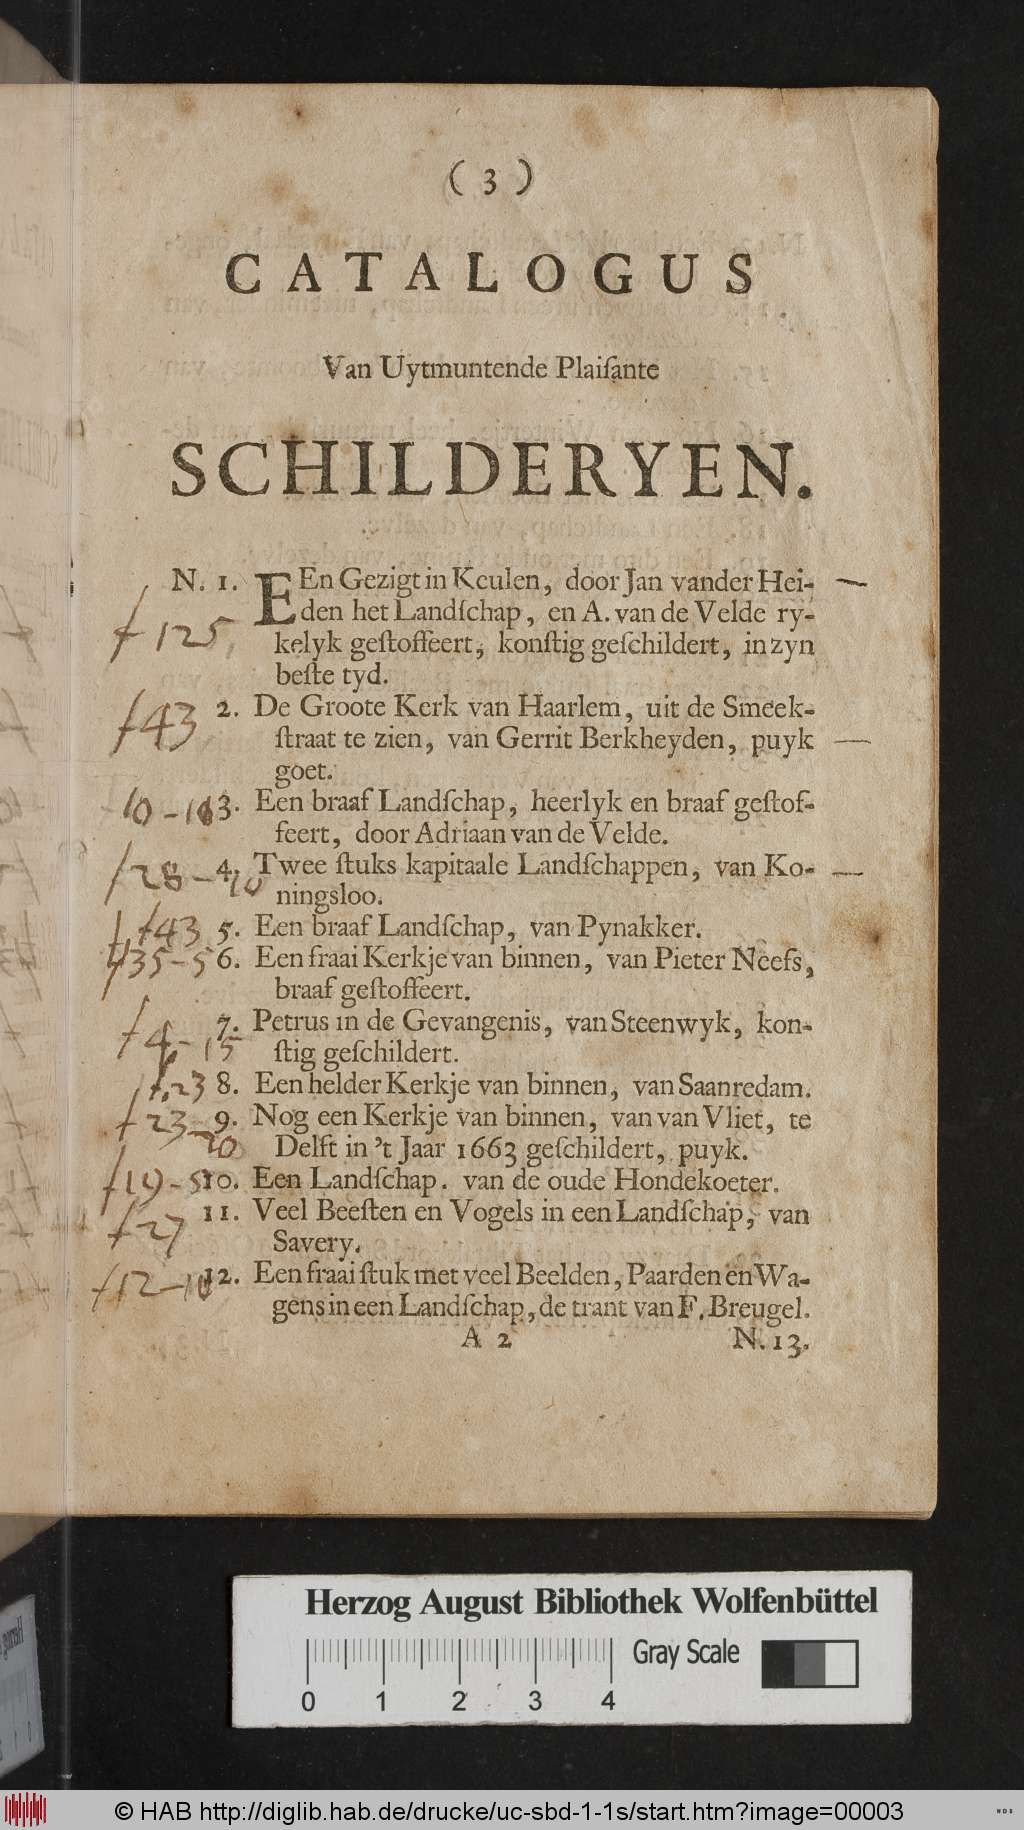 ( 3 )
CATALOGUS
Van Uytmuntende Plaiſante
SCHILDERYEN.
N. 1. EEn Gezigt in Keulen, door Jan vander Hei-
den het Landſchap, en A. van de Velde ry-
f 125
kelyk geſtoffeert, konſtig geſchildert, in zyn
beſte tyd.
f 43 2. De Groote Kerk van Haarlem, uit de Smeek-
ſtraat te zien, van Gerrit Berkheyden, puyk
goet.
3. Een braaf Landſchap, heerlyk en braaf geſtof-
feert, door Adriaan van de Velde.
f 28 - 10 4. Twee ſtuks kapitaale Landſchappen, van Ko-
ningsloo.
f 43 5. Een braaf Landſchap, van Pynakker.
f 35 - 5 6. Een fraai Kerkje van binnen, van Pieter Neefs,
braaf geſtoffeert.
f 4 - 15 7. Petrus in de Gevangenis, van Steenwyk, kon-
ſtig geſchildert.
f 23 8. Een helder Kerkje van binnen, van Saanredam.
f 23 - 20 9. Nog een Kerkje van binnen, van van Vliet, te
Delft in 't Jaar 1663 geſchildert, puyk.
f 19 - 5 10. Een Landſchap. van de oude Hondekoeter.
f 27 11. Veel Beeſten en Vogels in een Landſchap, van
Savery.
f 12 - 10 12. Een fraai ſtuk met veel Beelden, Paarden en Wa-
gens in een Landſchap, de trant van F. Breugel.
A 2 N. 13.
Herzog August Bibliothek Wolfenbüttel
Gray Scale
0 1 2 3 4
© HAB http://diglib.hab.de/drucke/uc-sbd-1-1s/start.htm?image=00003